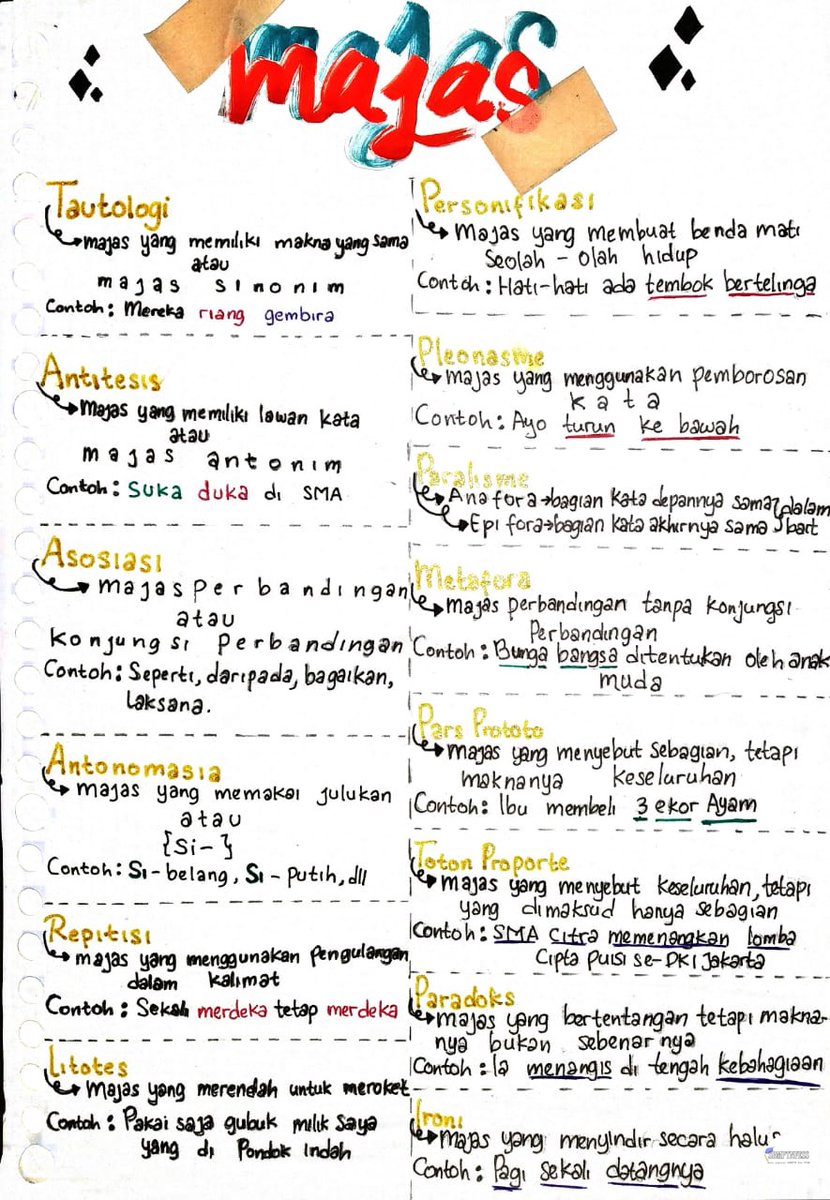 majas
Tautologi
majas yang memiliki makna yang sama
atau
majas sinonim
Contoh: Mereka riang gembira
Antitesis
Majas yang memiliki lawan kata
atau
majas antonim
Contoh: Suka duka di SMA
Asosiasi
majas Perbandingan
atau
Konjungsi Perbandingan
Contoh: Seperti, daripada, bagaikan,
laksana.
Antonomasia
majas yang memakai julukan
atau
{Si-}
Contoh: Si-belang, Si-putih, dll
Repitisi
majas yang menggunakan pengulangan
dalam kalimat
Contoh: Sekali merdeka tetap merdeka
Litotes
Majas yang merendah untuk meroket
Contoh: Pakai saja gubuk milik saya
yang di Pondok Indah
Personifikasi
Majas yang membuat benda mati
Seolah-olah hidup
Contoh: Hati-hati ada tembok bertelinga
Pleonasme
majas yang menggunakan pemborosan
kata
Contoh: Ayo turun ke bawah
Paralisme
Anafora→bagian kata depannya sama } dalam
Epifora→bagian kata akhirnya sama } bait
Metafora
majas perbandingan tanpa konjungsi
Perbandingan
Contoh: Bunga bangsa ditentukan oleh anak
muda
Pars Prototo
majas yang menyebut Sebagian, tetapi
maknanya keseluruhan
Contoh: Ibu membeli 3 ekor Ayam
Toton Proporte
majas yang menyebut keseluruhan, tetapi
yang dimaksud hanya sebagian
Contoh: SMA Citra memenangkan lomba
Cipta Puisi se-DKI Jakarta
Paradoks
majas yang bertentangan tetapi makna-
nya bukan sebenarnya
Contoh: Ia menangis di tengah kebahagiaan
Ironi
majas yang menyindir secara halus
Contoh: Pagi sekali datangnya